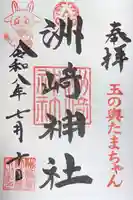 奉拝
玉の輿たまちゃん
洲崎神社
令和八年七月十日